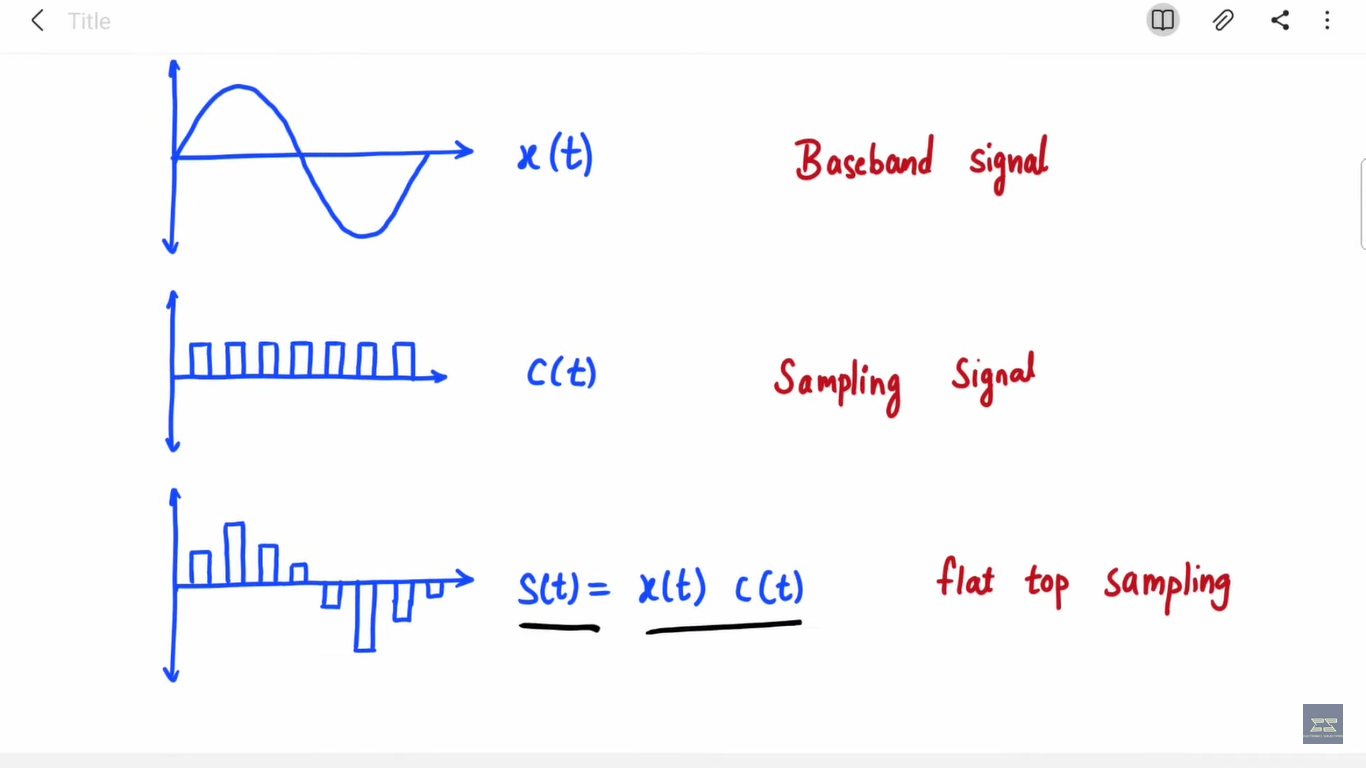 Title
x(t) Baseband signal
C(t) Sampling Signal
S(t) = x(t) c(t) flat top sampling